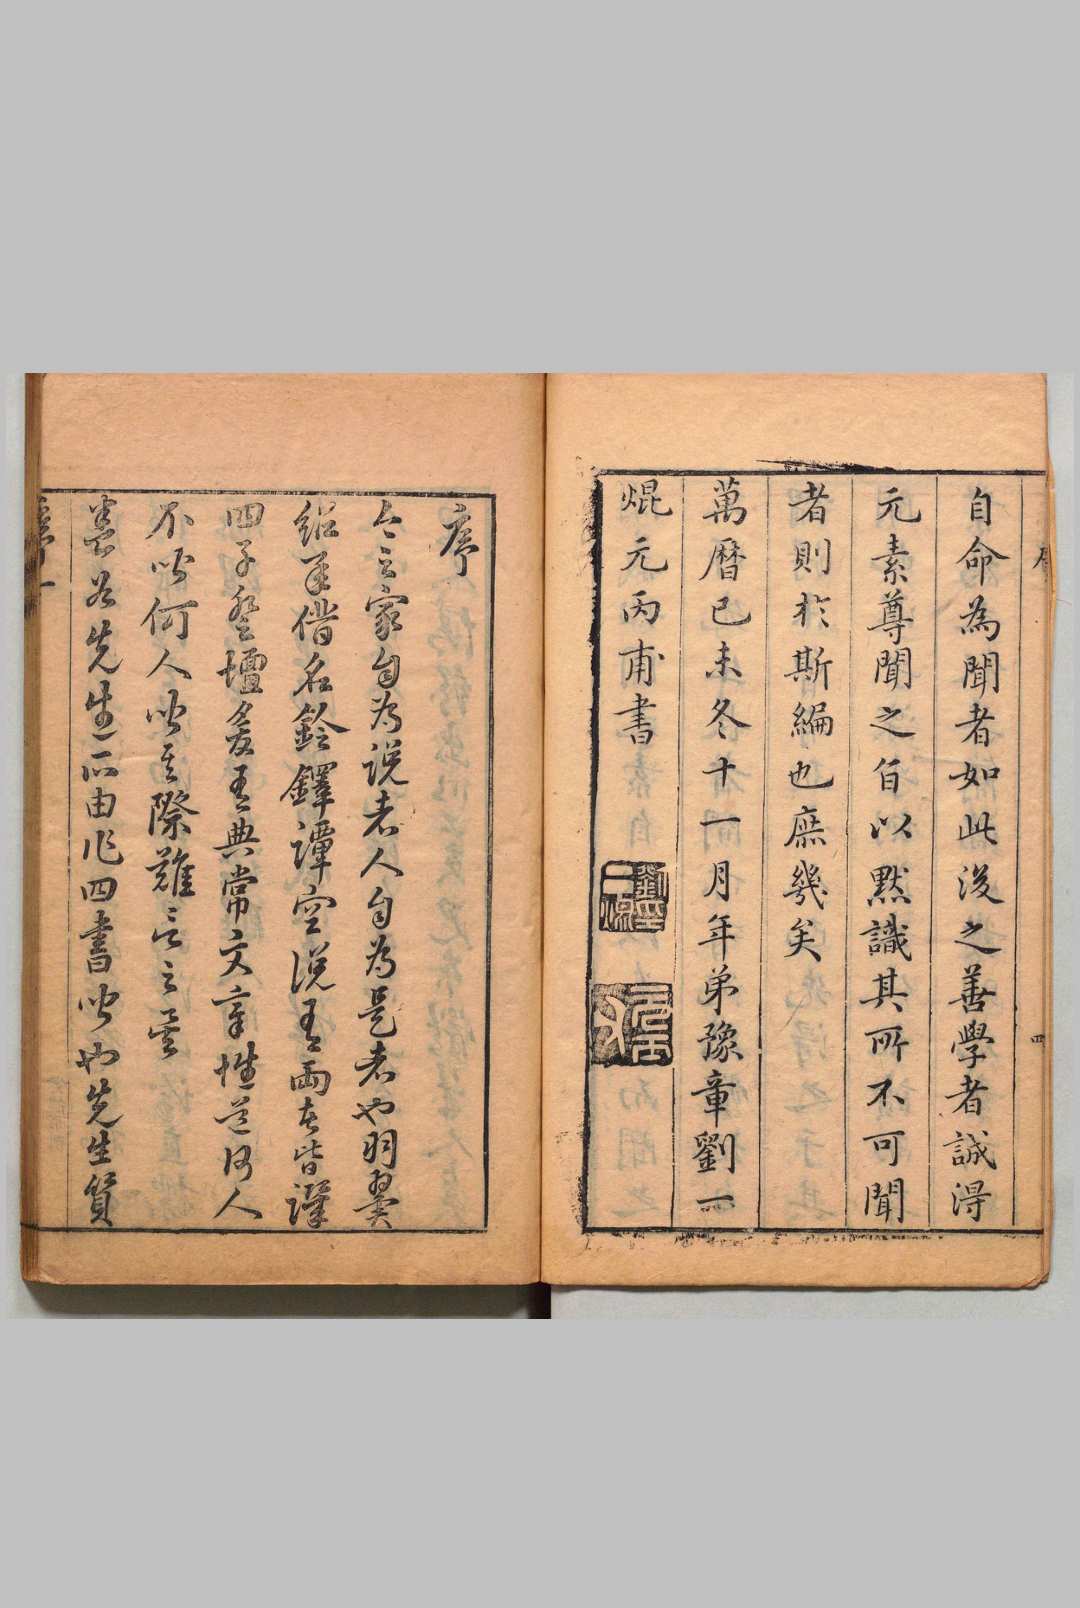 自命為聞者如此後之善學者誠淂
元素尊聞之旨以默識其所不可聞
者則於斯編也庶幾矣
萬曆己未冬十一月年弟豫章劉一
焜元丙甫書
序
今之家自為說者人自為是者也羽翼
借名鈴鐸譚空說有兩者皆
四子登壇爰有典常文章性道得人
不聞何人聞其際難言之矣
先生所由作四書聞也先生質